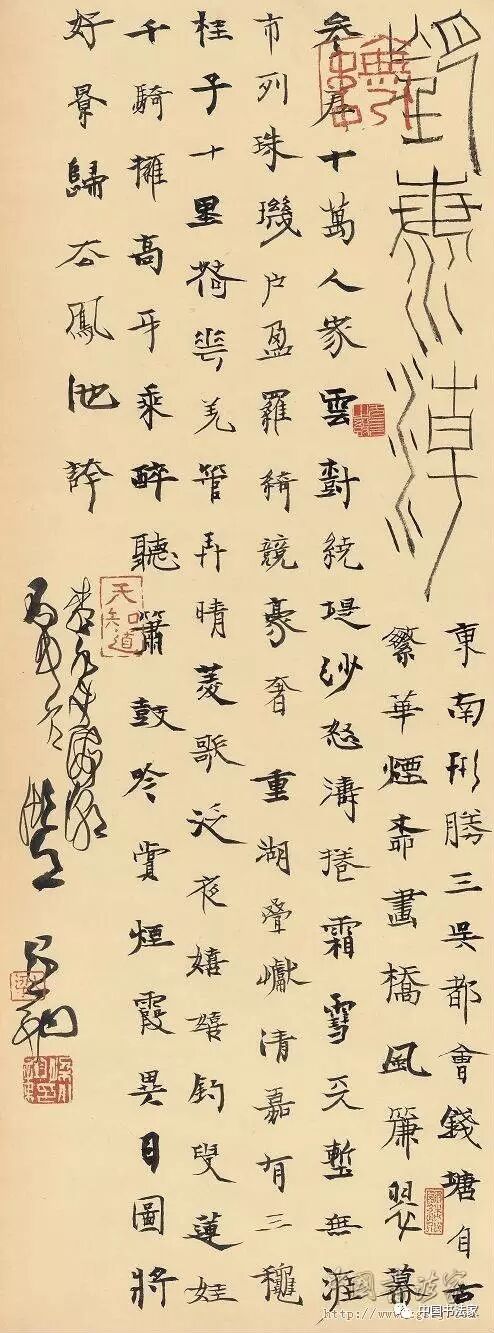 望海潮
東南形勝三吳都會錢塘自古
繁華煙柳畫橋風簾翠幕
參差十萬人家雲樹繞堤沙怒濤捲霜雪天塹無涯
市列珠璣户盈羅綺競豪奢重湖疊巘清嘉有三龝
桂子十里荷花羌管弄晴菱歌泛夜嬉嬉釣叟蓮娃
千騎擁高牙乘醉聽簫鼓吟賞煙霞異日圖將
好景歸去鳳池誇
天知道
中国书法家